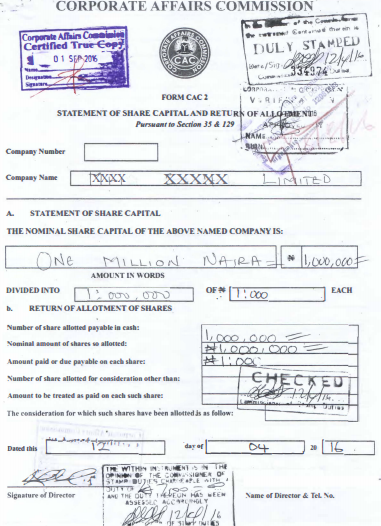 CORPORATE AFFAIRS COMMISSION
Corporate Affairs Commission
Certified True Copy
01 SEP 2016
Name
Designation
Signature
CAC
DULY STAMPED
334974
FORM CAC 2
STATEMENT OF SHARE CAPITAL AND RETURN OF ALLOTMENT:
Pursuant to Section 35 & 129
NAME:
Company Number
Company Name XXXX XXXXX LIMITED
A. STATEMENT OF SHARE CAPITAL
THE NOMINAL SHARE CAPITAL OF THE ABOVE NAMED COMPANY IS:
ONE MILLION NAIRA = ₦ 1,000,000=
AMOUNT IN WORDS
DIVIDED INTO 1:000,000 OF ₦ 1:000 EACH
b. RETURN OF ALLOTMENT OF SHARES
Number of share allotted payable in cash: 1,000,000 =
Nominal amount of shares so allotted: ₦1,000,000 =
Amount paid or due payable on each share: ₦1:00
Number of share allotted for consideration other than:
CHECKED
Amount to be treated as paid on each such share:
The consideration for which such shares have been allotted is as follow:
Dated this 12 day of 04 20 16
THE WITHIN INSTRUMENT IS IN THE
OPINION OF THE COMMISSIONER OF
STAMP DUTIES CHARGEABLE WITH A
DUTY OF
AND THE DUTY THEREON HAS BEEN
ASSESSED ACCORDINGLY
12/04/16
OF STAMP DUTIES
Signature of Director
Name of Director & Tel. No.